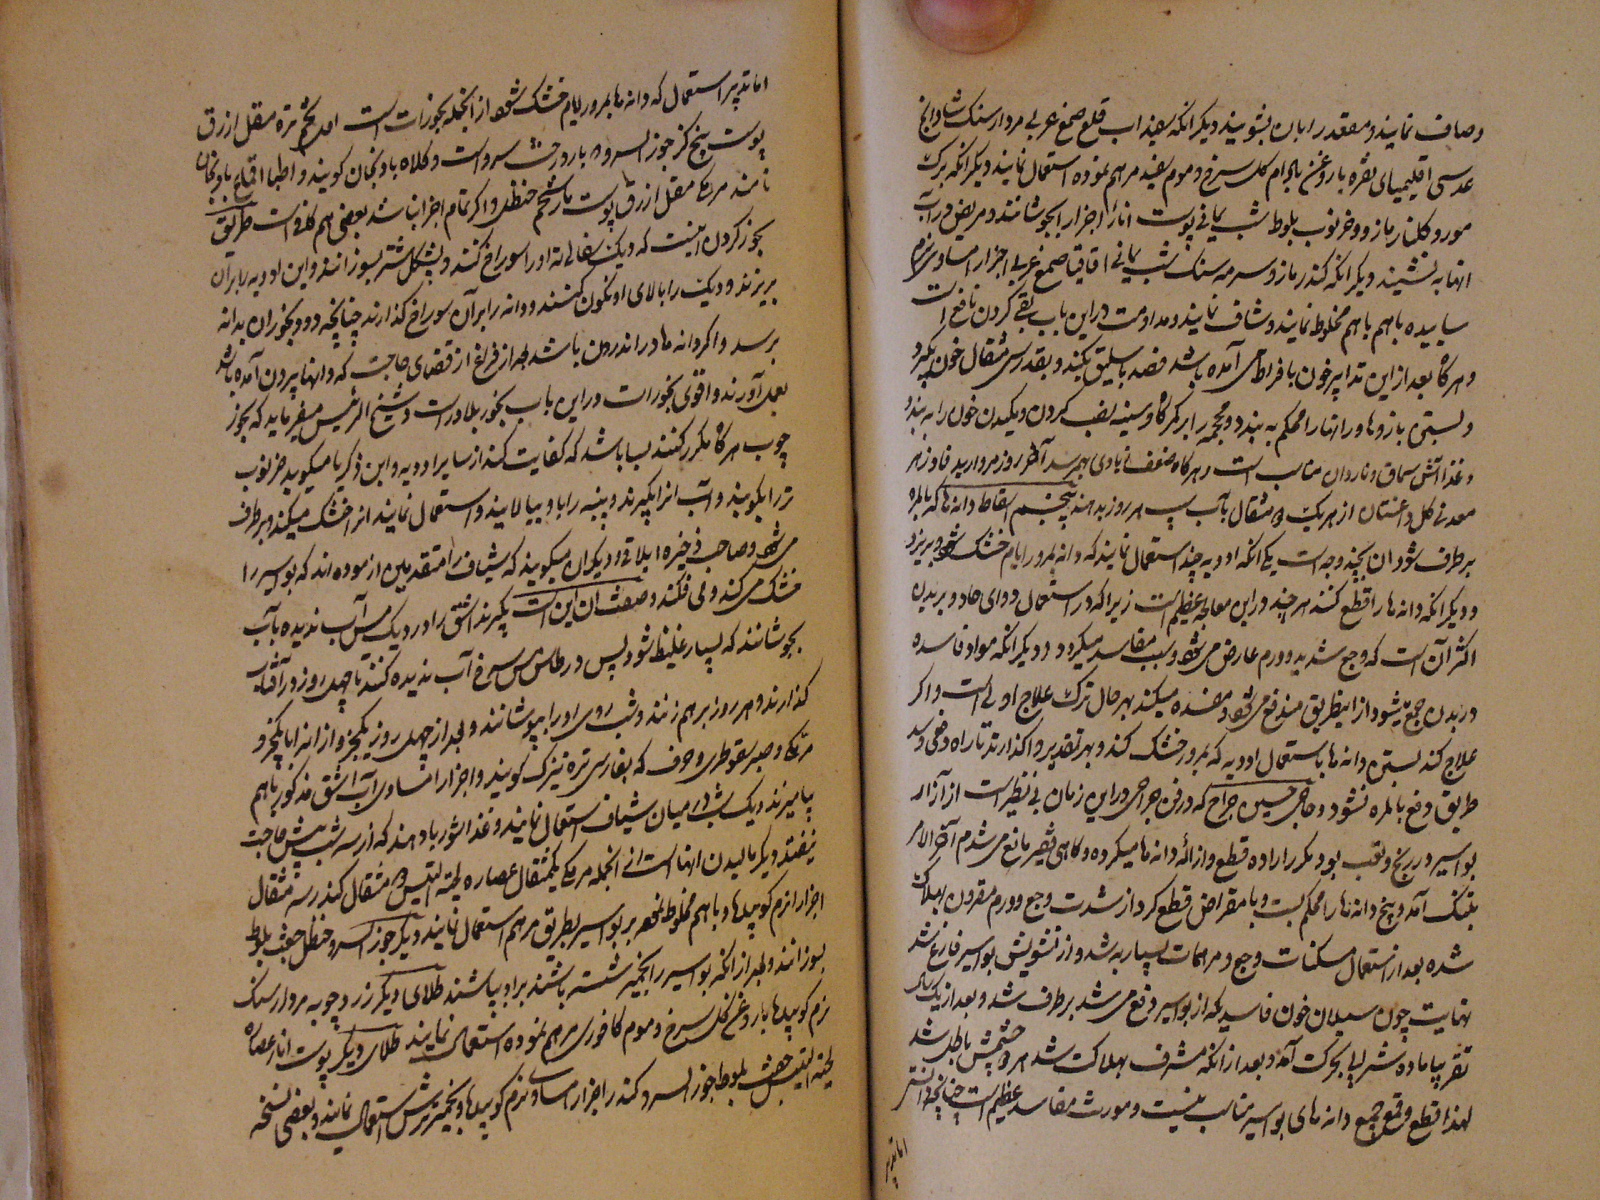 وصاف نمایند و مقعد را بان بشویند دیگر انکه سفیداب قلع صمغ عربی مردار سنک شادنج
عدسی اقلیمیای نقره با روغن بادام کل سرخ و موم سفید مرهم نموده استعمال نمایند دیگر انکه برک
مورد و کلنار مازو و خرنوب بلوط شب یمانی پوست انار اجزا را بجوشانند و مریض در آب
انها به نشیند دیگر انکه کندر مازو سرمه سنک شب یمانی اقاقیا صمغ عربی اجزا را مساوی نرم
ساییده باهم مخلوط نمایند و شاف نمایند و مداومت در این باب بقی کردن نافع است
و هر کاه بعد از این تدابیر خون بافراط می آمده باشد فصد باسلیق بکند و بقدر سی مثقال خون بکیرد
و بستن بازوها و رانها را محکم به بندد و محجمه را بر کمرکاه و سینه نصب کردن و مکیدن خون را به بندد
و غذا آش سماق و ناردان مناسب است و هر کاه ضعف زیادی بهم رسد آخر روز مروارید فادزهر
معدنی کل داغستان از هر یک مثقال بآب سیب هر روز بدهند پنجم اسقاط دانه ها که بالمره
بر طرف شود ان بچند وجه است یکی انکه ادویه چند استعمال نمایند که دانه بمرور ایام خشک شود و بریزد
و دیگر انکه دانه ها را قطع کنند هر چند در این معالجه عظیم است زیرا که در استعمال دوای حاد و بریدن
اکثر آن است که وجع شدید و ورم عارض می شود و سبب مفاسد میکردد و دیگر انکه مواد فاسده
در بدن جمع میشود از اینطریق مندفع می شود مفسده میکند بهر حال ترک علاج اولی است و اکر
علاج کند بستن دانه ها باستعمال ادویه که بمرور خشک کند و بهر تقدیر واکذارند تا راه دفعی و سد
طریق دفع بالمره نشود و حاجی حسین جراح که در فن جراحی در این زمان بی نظیر است از آزار
بواسیر در رنج و تعب بود مکرر اراده قطع و ازاله دانه ها میکرده و کاهی فقیر مانع می شدم آخر الامر
بتنک آمد و پنج دانه ها را محکم بست و با مقراض قطع کرد از شدت وجع و ورم مقرون بهلاکت
شده بعد از استعمال مسکنات وجع و مرهمات بسیار به شد و از تشویش بواسیر فارغ شد
نهایت چون سیلان خون فاسد که از بواسیر دفع می شد بر طرف شد و بعد از یک سال
تقریبا ماده شریان بحرکت آمد و بعد از انکه مشرف بهلاکت شد هر دو چشمش باطل شد
لهذا قطع و قمع جمیع دانه های بواسیر مناسب نیست و مورث مفاسد عظیم است چنانچه دانستر
اما تدبیر
اما تدبیر استعمال که دانه ها بمرور ایام خشک شود از انجمله بخورات است اول تخم تره مقل ازرق
پوست بیخ کز جوز السرو که بار درخت سرو است و کلاه بادنجان کویند و اطبا اقماع بادنجان
نامند مرمکی مقل ازرق پوست مار شحم حنظل و اکر تمام اجزا نباشد بعضی هم کافی است طریق
بخور کردن اینست که دیک سفالی ته او را سوراخ کنند و پشکل شتر بسوزانند و این ادویه را بر آن
بریزند و دیک را بالای او نکون کنند و دانه را بر آن سوراخ کذارند چنانچه دود بخور ان بدانه
برسد و اکر دانه ها در اندرون باشد بعد از فراغ از قضای حاجت که دانها بیرون آمده باشد
بعمل آورند و اقوی بخورات در این باب بخور بلادر است و شیخ الرئیس میفرماید که بخور
چوب هر کاه مکرر کنند بسا باشد که کفایت کند از سایر ادویه و ابن ذکریا میکوید خرنوب
تر را بکوبند و آب انرا بکیرند و پنبه را باو بیالایند و استعمال نمایند انرا خشک میکند و بر طرف
می شود و صاحب ذخیره ایلاقی و دیکران میکویند که شیاف را متقدمین ازموده اند که بواسیر را
خشک می کند و می فکند و صفت ان این است بکیرند اشق را و در دیک مس آب ندیده بآب
بجوشانند که بسیار غلیظ شود پس در طاس مس سرخ آب ندیده کنند تا چهل روز در آفتاب
کذارند و هر روز بر هم زنند و شب روی او را بپوشانند و بعد از چهل روز یکجزو از انرا با یکجزو
مرمکی و صبر سقوطری و حرف که بفارسی تره تیزک کویند و اجزا را مساوی آب اشق مذکور باهم
بیامیزند و یک شب در میان شیاف استعمال نمایند و غذا شوربا دهند که از سه شب بیش حاجت
نیفتد و دیگر مالیدن انها است از انجمله مرمکی یکمثقال عصاره لحیه التیس مثقال کندر سه مثقال
اجزا را نرم کوبیده و باهم مخلوط نموده بر بواسیر بطریق مرهم استعمال نمایند دیگر جوز السرو حنظل جفت بلوط
بسوزانند و بعد از انکه بواسیر را شسته باشند بر او بپاشند طلای دیگر زرد چوبه مردار سنک
نرم کوبیده با روغن کل سرخ و موم کافوری مرهم نموده استعمال نمایند طلای دیگر پوست انار عصاره
لحیه التیس جفت بلوط جوز السرو کندر اجزا را مساوی نرم کوبیده و بخمیر ترش استعمال نمایند و بعضی نسخه